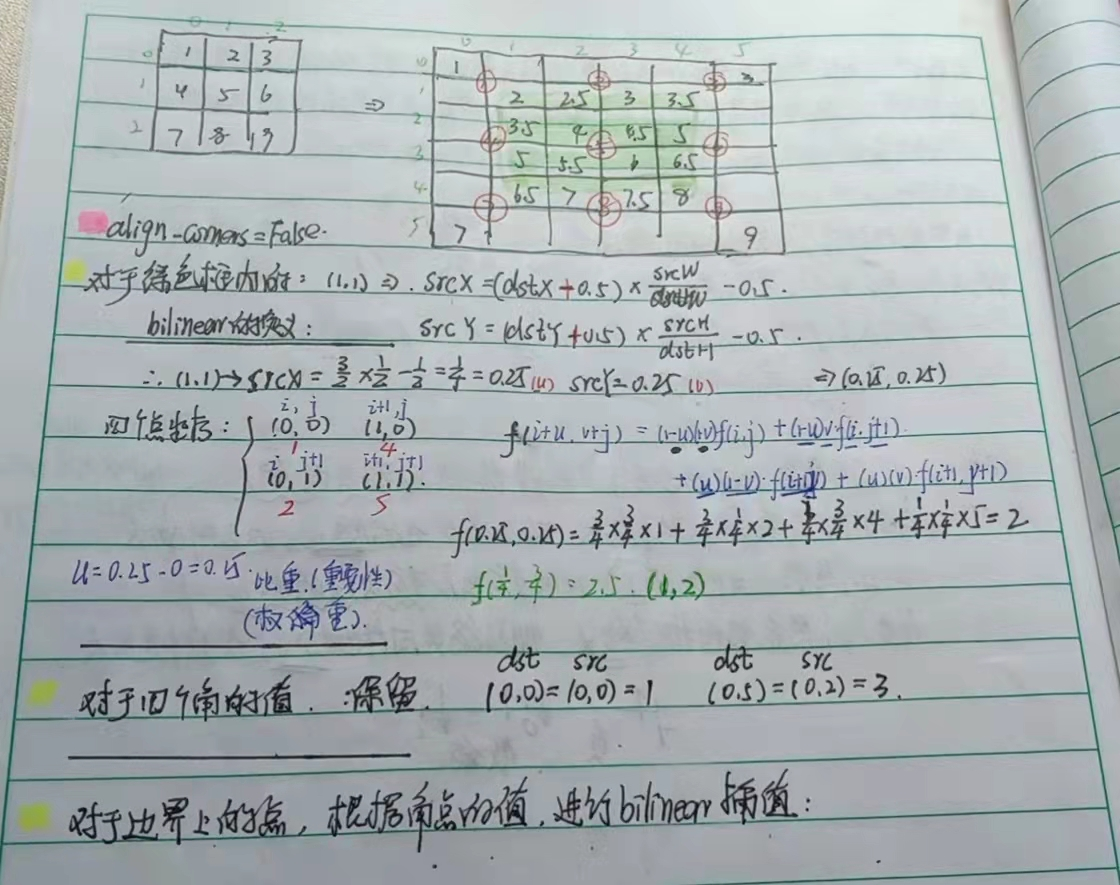 0 1 2
0 1 2 3
1 4 5 6
2 7 8 9
⇒
0 1 2 3 4 5
0 1 3
1 2 2.5 3 3.5
2 3.5 4 4.5 5
3 5 5.5 6 6.5
4 6.5 7 7.5 8
5 7 9
align-corners=False.
对于绿色框内的: (1,1) ⇒. srcX=(dstX+0.5)×srcW/dstW-0.5.
bilinear的定义: srcY=(dstY+0.5)×srcH/dstH-0.5.
∴(1,1)→srcX=3/2×1/2-1/2=1/4=0.25(u) srcY=0.25(v) ⇒(0.25,0.25)
四个点坐标: i,j (0,0) 1 i+1,j (1,0) 4
i,j+1 (0,1) 2 i+1,j+1 (1,1). 5
f(i+u,v+j)=(1-u)(1-v)f(i,j)+(1-u)v·f(i,j+1)
+(u)(1-v)·f(i+1,j)+(u)(v)·f(i+1,j+1)
f(0.25,0.25)=3/4×3/4×1+3/4×1/4×2+1/4×3/4×4+1/4×1/4×5=2
u=0.25-0=0.25. 比重.(重要性)
(权重).
f(1/4,3/4)=2.5.(1,2)
对于四个角的值. :保留. dst src dst src
(0,0)=(0,0)=1 (0,5)=(0,2)=3.
对于边界上的点,根据角点的值,进行bilinear插值: